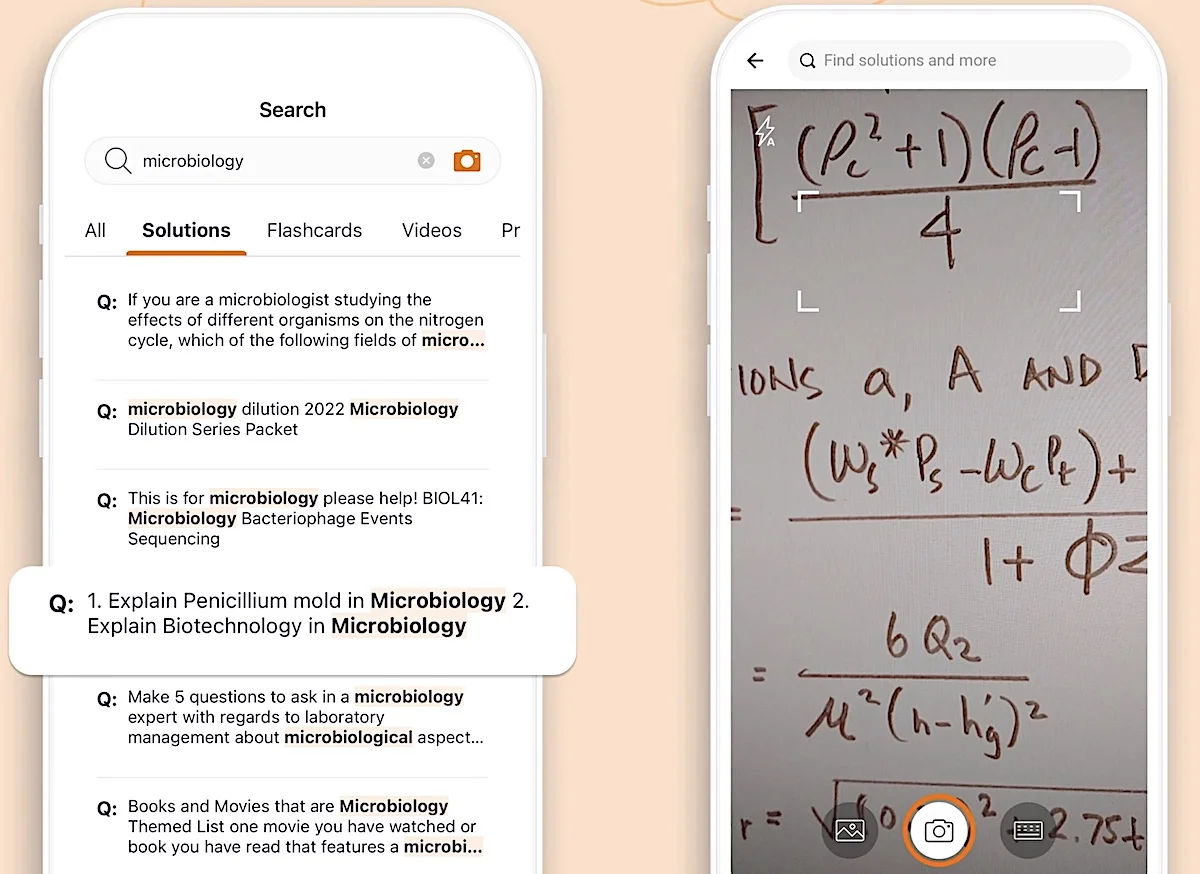 Search
microbiology
All Solutions Flashcards Videos Pr
Q: If you are a microbiologist studying the
effects of different organisms on the nitrogen
cycle, which of the following fields of micro...
Q: microbiology dilution 2022 Microbiology
Dilution Series Packet
Q: This is for microbiology please help! BIOL41:
Microbiology Bacteriophage Events
Sequencing
Q: 1. Explain Penicillium mold in Microbiology 2.
Explain Biotechnology in Microbiology
Q: Make 5 questions to ask in a microbiology
expert with regards to laboratory
management about microbiological aspect...
Q: Books and Movies that are Microbiology
Themed List one movie you have watched or
book you have read that features a microbi...
Find solutions and more
A
[ (Pc² + 1)(Pc-1)
4
IONS a, A AND D
= (Ws*Ps - WcPt) +
1 + Φ2
= 6Q2
μ²(h-h'g)²
r = √ 0 ² + 2.75t